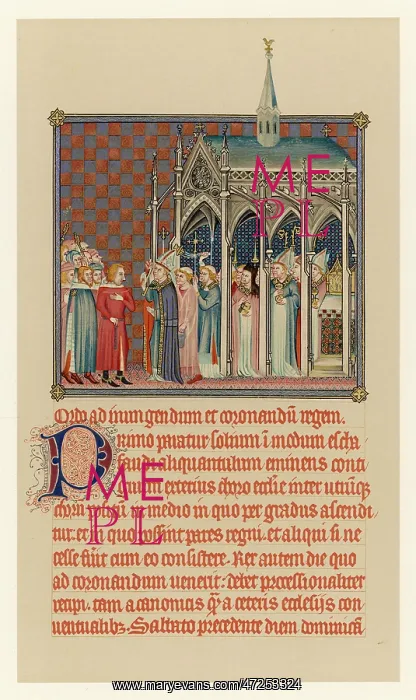 ME
PL
Ordo ad inungendum et coronandū regem.
Primo paratur solium ī modum escha
faudi aliquantulum eminens conti
exterius choro ecclie inter utrūqz
chorū medio in quo per gradus ascendi
tur. et quo possint pares regni. et aliqui si ne
cesse fuīt cum eo consistere. Rex autem die quo
ad coronandum venerit: debet processionaliter
recipi. tam a canonicis q̄ a ceteris ecclesijs con
uentualibz. Sabbato precedente diem dominicā
ME
PL
www.maryevans.com/47253324